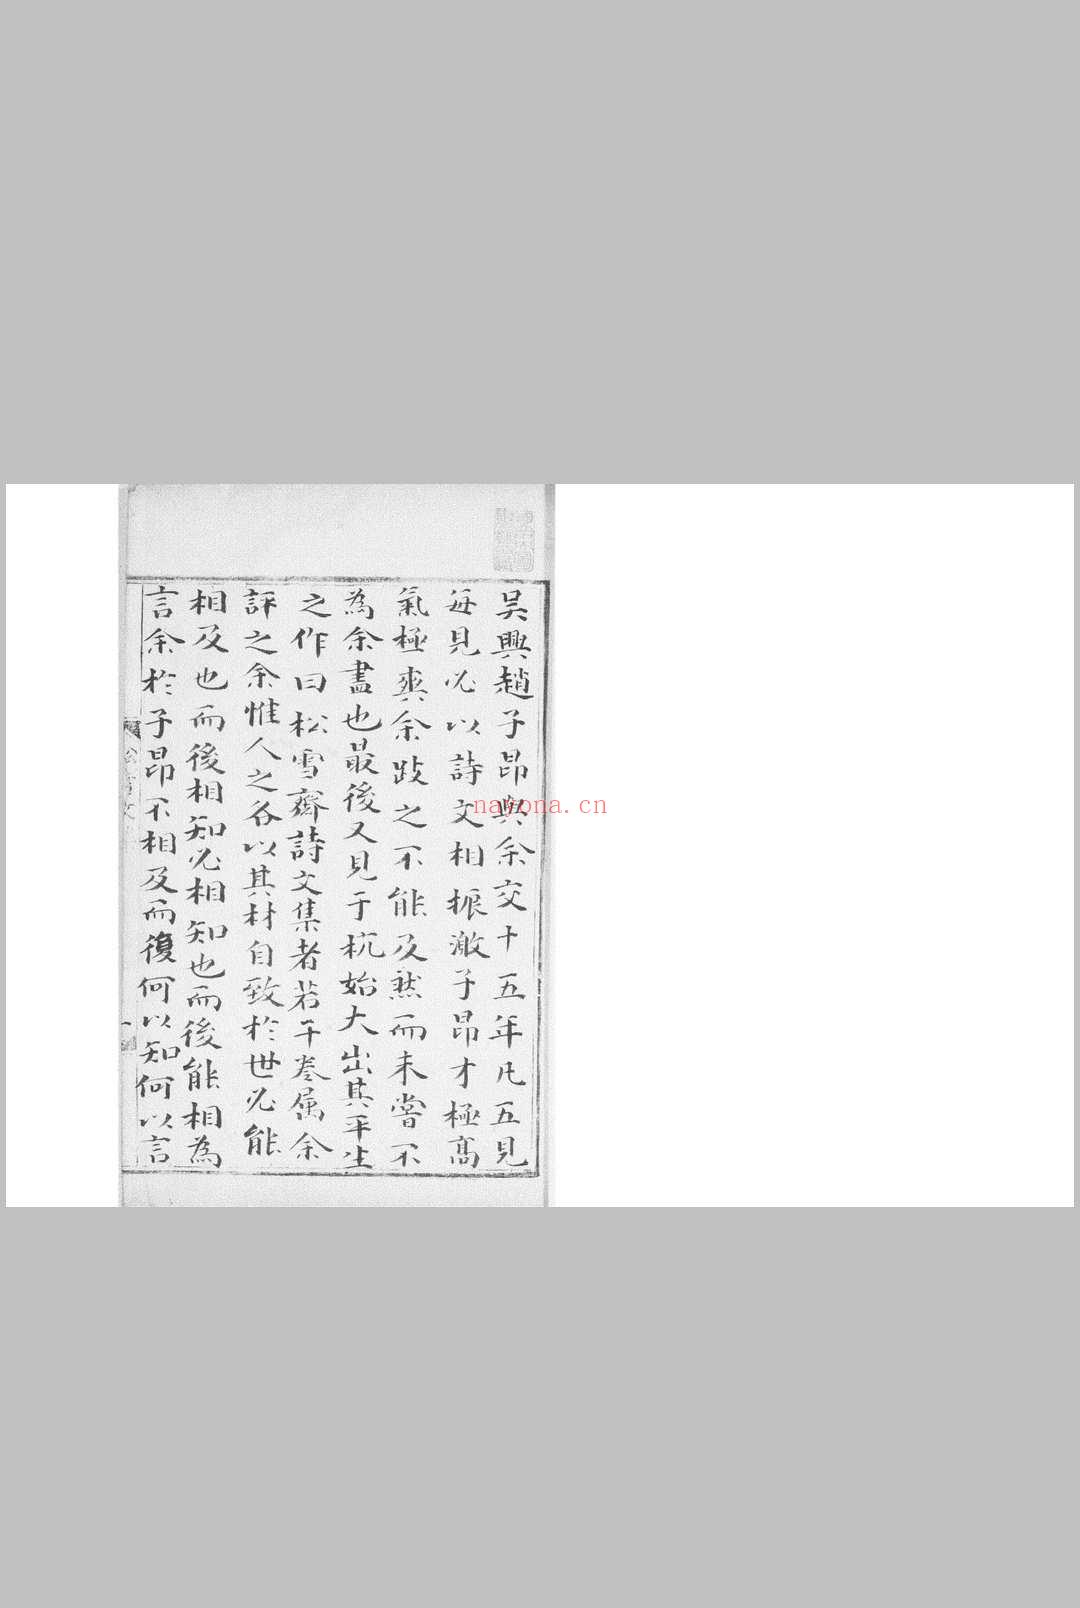 吴興趙子昂與余交十五年凡五見
每見必以詩文相振激子昂才極高
氣極爽余跂之不能及然而未嘗不
為余盡也最後又見于杭始大出其平生
之作曰松雪齋詩文集者若干卷属余
評之余惟人之各以其材自致於世必能
相及也而後相知必相知也而後能相為
言余於子昂不相及而復何以知何以言
nayona.cn